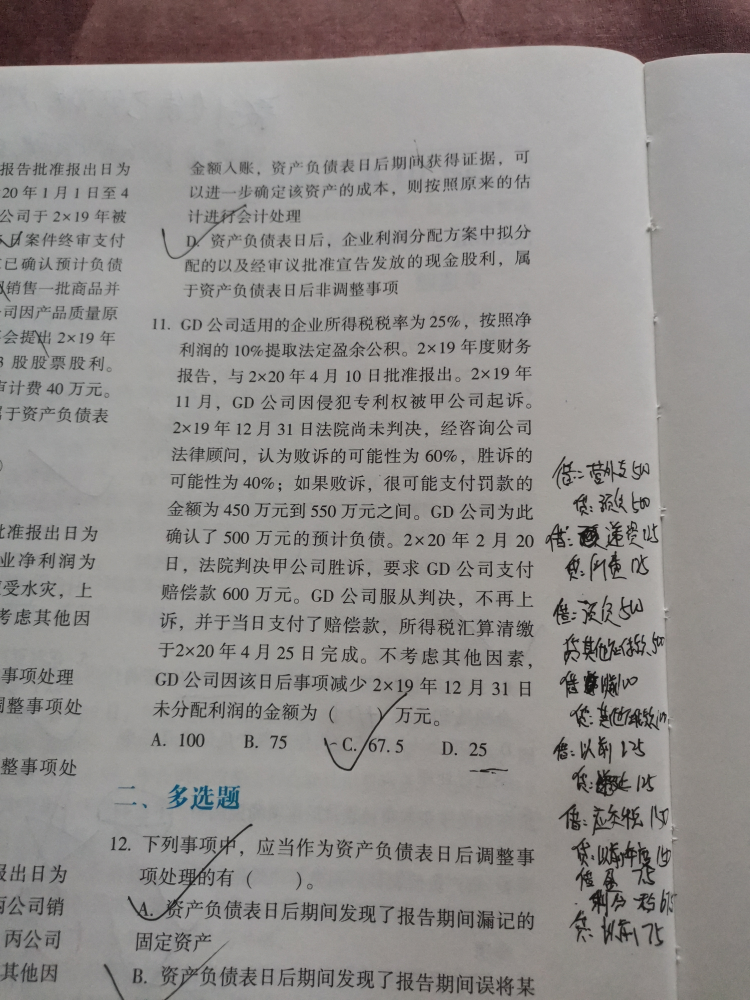 报告批准报出日为
20年1月1日至4
公司于2×19年被
日案件终审支付
已确认预计负债
销售一批商品并
司因产品质量原
会提出2×19年
3股股票股利。
审计费40万元。
属于资产负债表
)
批准报出日为
业净利润为
受水灾，上
考虑其他因
事项处理
调整事项处
整事项处
报出日为
丙公司销
丙公司
其他因
金额入账，资产负债表日后期间获得证据，可
以进一步确定该资产的成本，则按照原来的估
计进行会计处理
D. 资产负债表日后，企业利润分配方案中拟分
配的以及经审议批准宣告发放的现金股利，属
于资产负债表日后非调整事项
11. GD公司适用的企业所得税税率为25%，按照净
利润的10%提取法定盈余公积。2×19年度财务
报告，与2×20年4月10日批准报出。2×19年
11月，GD公司因侵犯专利权被甲公司起诉。
2×19年12月31日法院尚未判决，经咨询公司
法律顾问，认为败诉的可能性为60%，胜诉的
可能性为40%；如果败诉，很可能支付罚款的
金额为450万元到550万元之间。GD公司为此
确认了500万元的预计负债。2×20年2月20
日，法院判决甲公司胜诉，要求GD公司支付
赔偿款600万元。GD公司服从判决，不再上
诉，并于当日支付了赔偿款，所得税汇算清缴
于2×20年4月25日完成。不考虑其他因素，
GD公司因该日后事项减少2×19年12月31日
未分配利润的金额为（ ）万元。
A. 100 B. 75 C. 67.5 D. 25
二、多选题
12. 下列事项中，应当作为资产负债表日后调整事
项处理的有（ ）。
A. 资产负债表日后期间发现了报告期间漏记的
固定资产
B. 资产负债表日后期间发现了报告期间误将某
借：营外支500
贷：预负500
借：递资125
贷：所费125
借：预负500
贷其他应付款500
贷：其他应付款100
借：以前125
贷： 125
借：应交税150
贷：以前年度150
75
67.5
贷：以前75